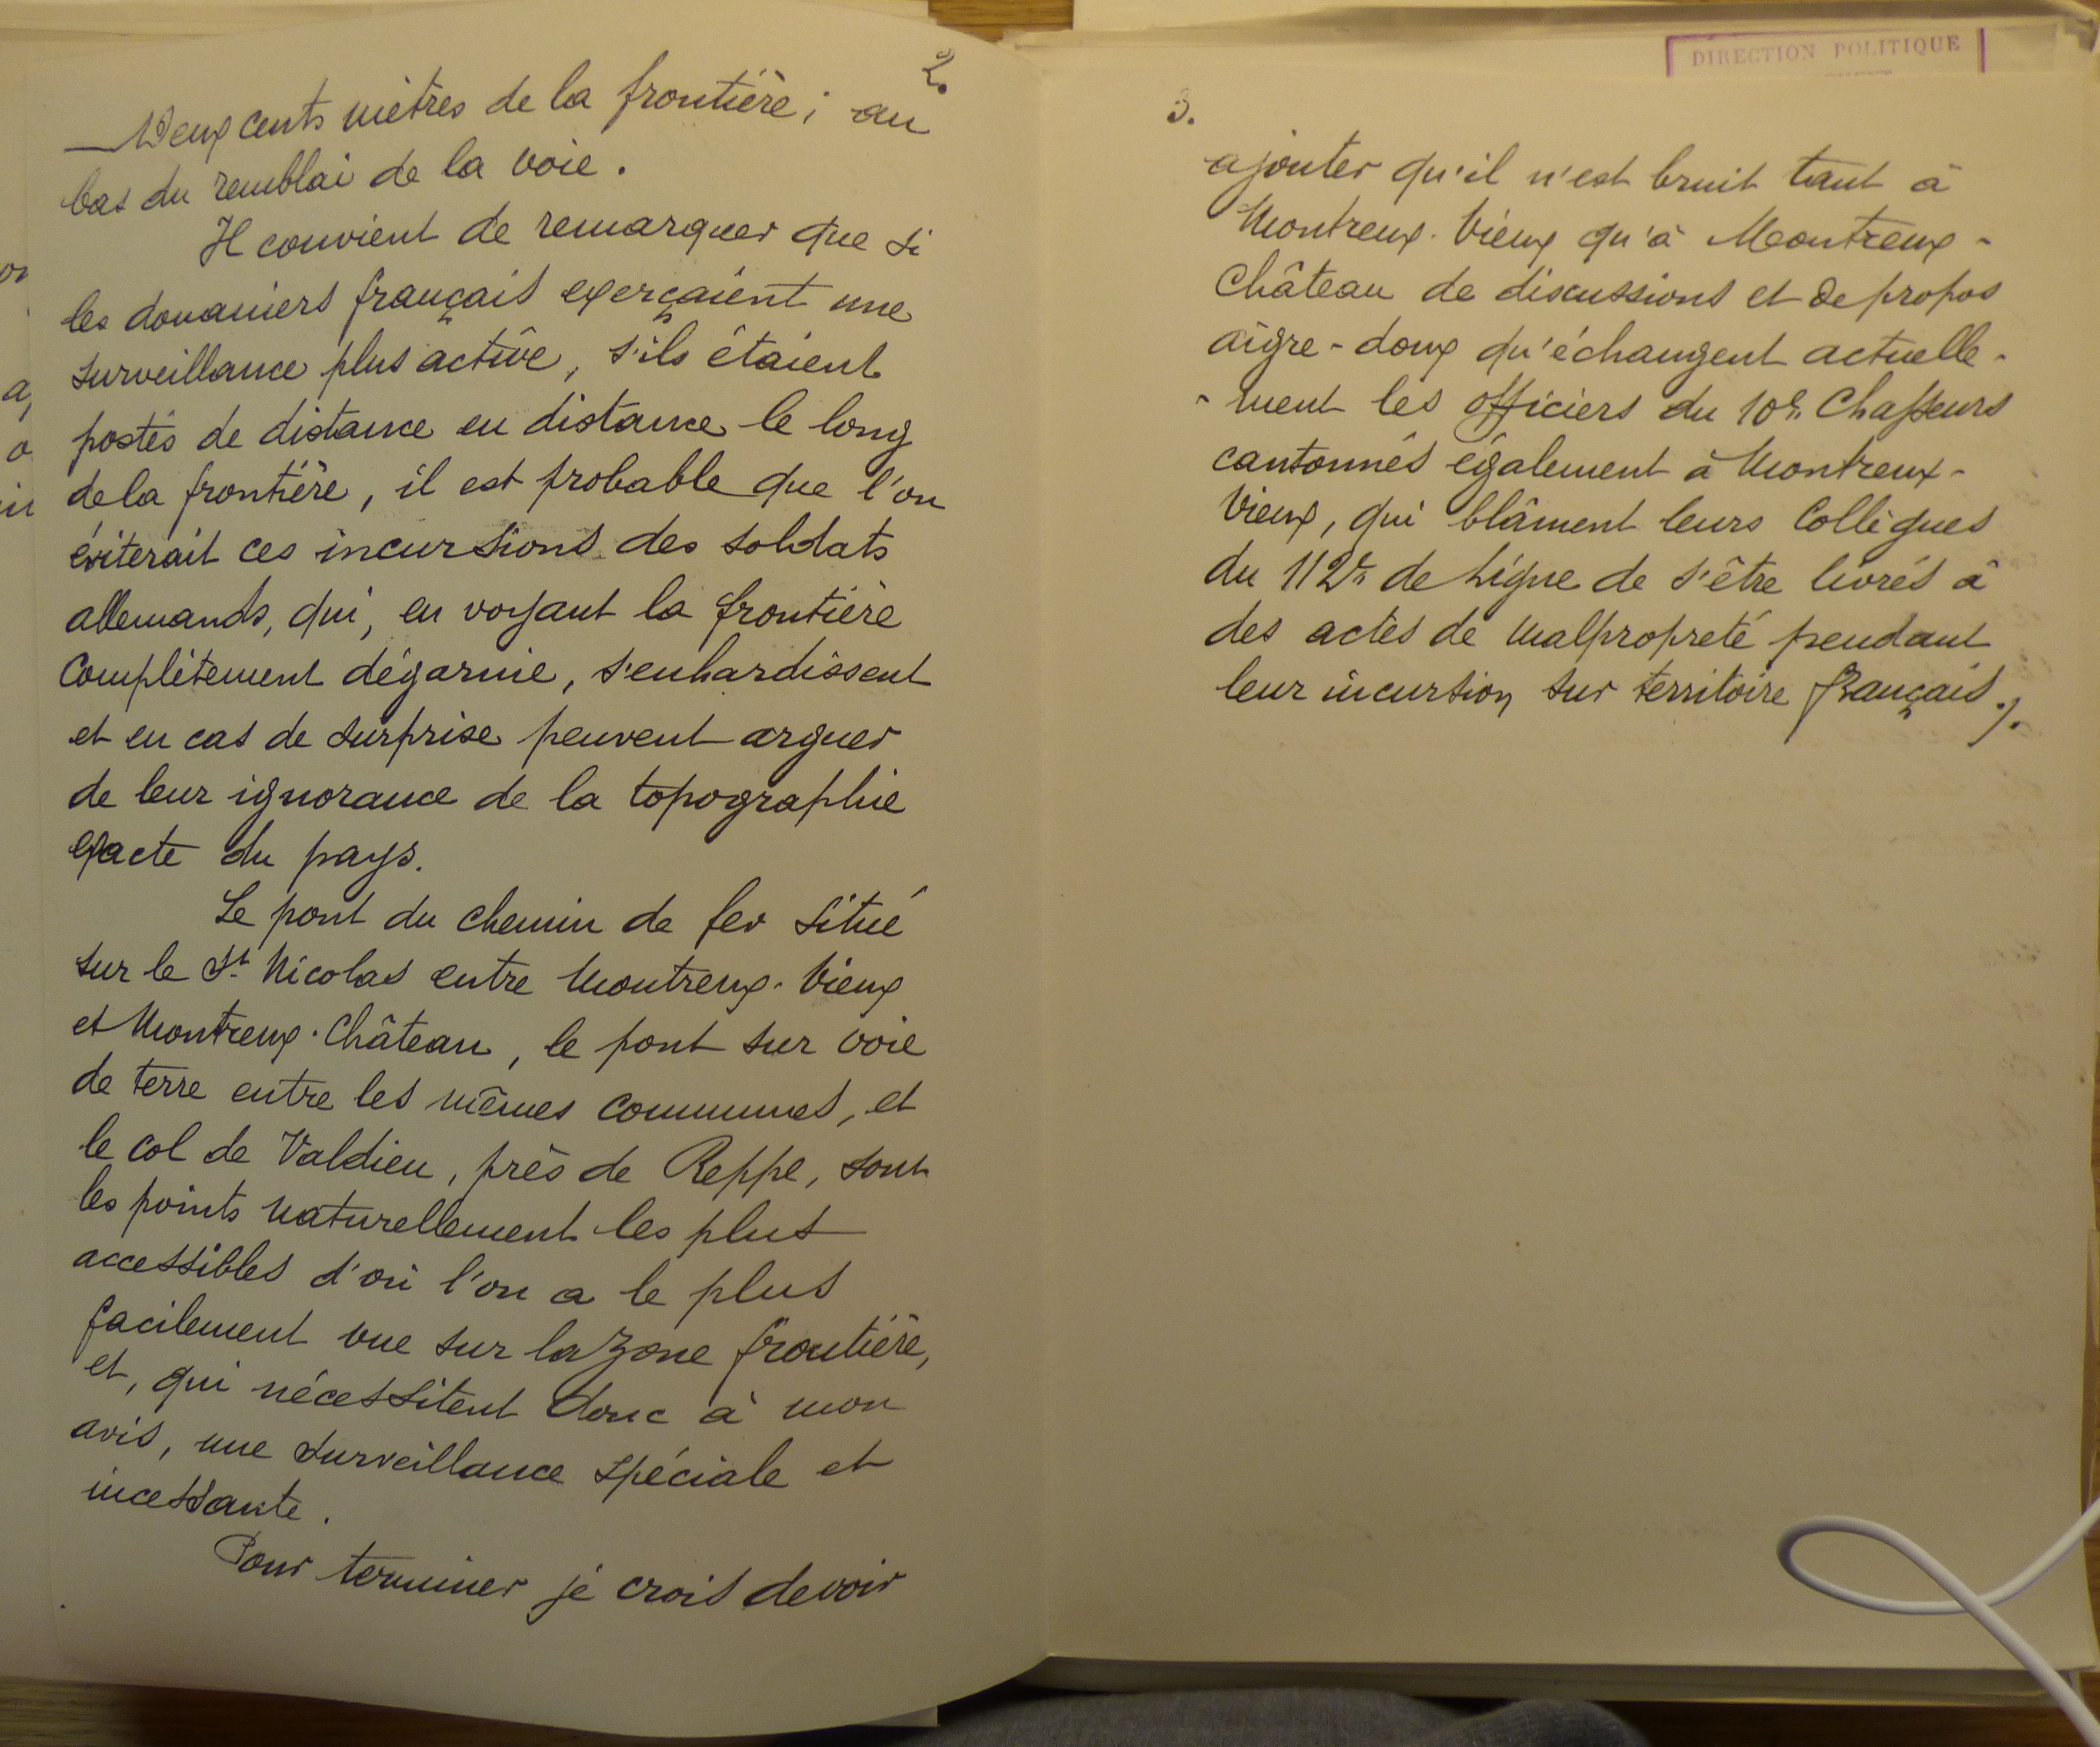 2.
Deux cents mètres de la frontière; au
bas du remblai de la voie.
Il convient de remarquer que si
les douaniers français exerçaient une
surveillance plus active, s'ils étaient
postés de distance en distance le long
de la frontière, il est probable que l'on
éviterait ces incursions des soldats
allemands, qui, en voyant la frontière
complètement dégarnie, s'enhardissent
et en cas de surprise peuvent arguer
de leur ignorance de la topographie
exacte du pays.
Le pont du chemin de fer situé
sur le St Nicolas entre Montreux-Vieux
et Montreux-Château, le pont sur voie
de terre entre les mêmes communes, et
le col de Valdieu, près de Reppe, sont
les points naturellement les plus
accessibles d'où l'on a le plus
facilement vue sur la zone frontière,
et, qui nécessitent donc à mon
avis, une surveillance spéciale et
incessante.
Pour terminer je crois devoir
DIRECTION POLITIQUE
3.
ajouter qu'il n'est bruit tant à
Montreux-Vieux qu'à Montreux-
Château de discussions et de propos
aigre-doux qu'échangent actuelle-
-ment les officiers du 10e Chasseurs
cantonnés également à Montreux-
Vieux, qui blâment leurs Collègues
du 112e de Ligne de s'être livrés à
des actes de malpropreté pendant
leur incursion sur territoire français./.